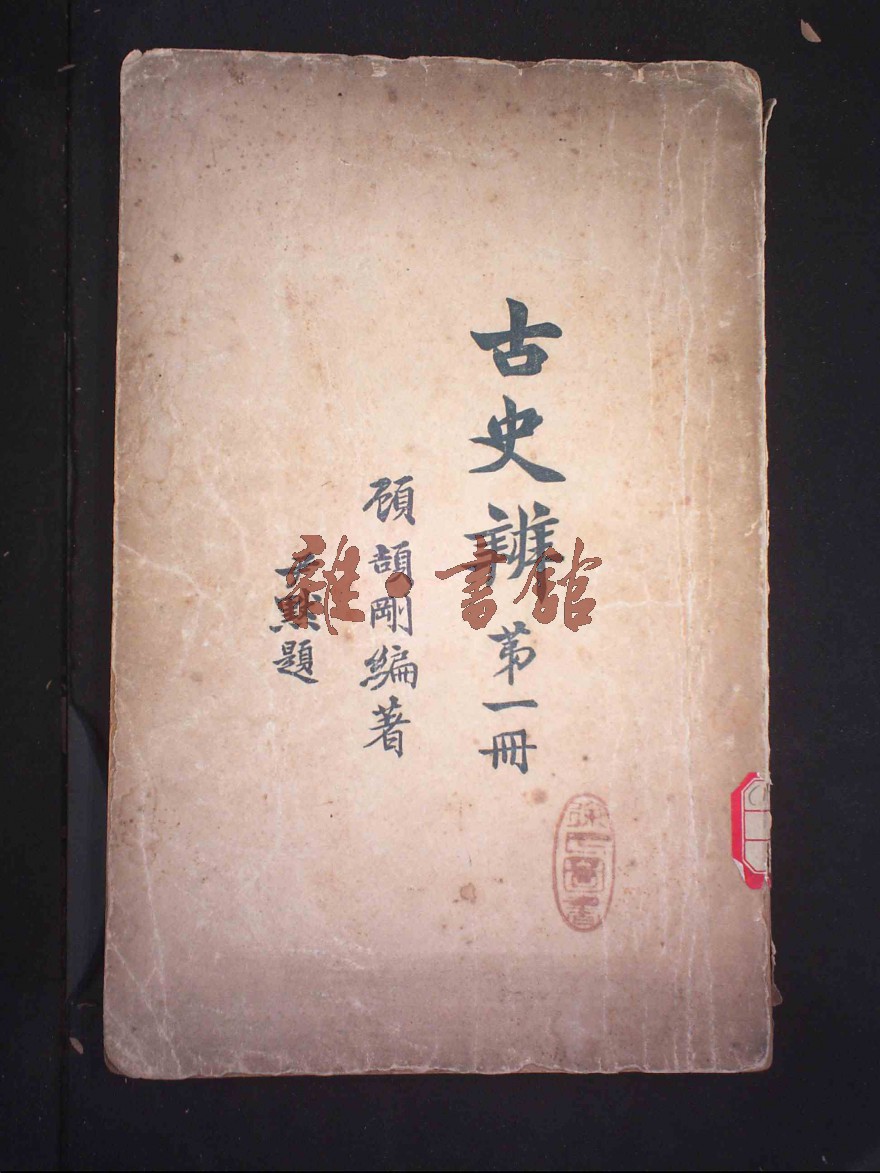 古史辨第一冊
顧頡剛編著
尹默題
雜·書館
圖書